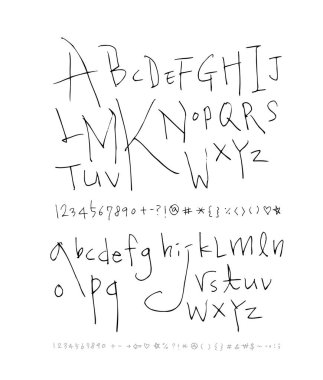 A B C D E F G H I J
L M K N O P Q R S
T U V W X Y Z
1234567890+-?!@#*{}%()()♡★
a b c d e f g h i j k L m l n
o p q r s t u v
w x y z